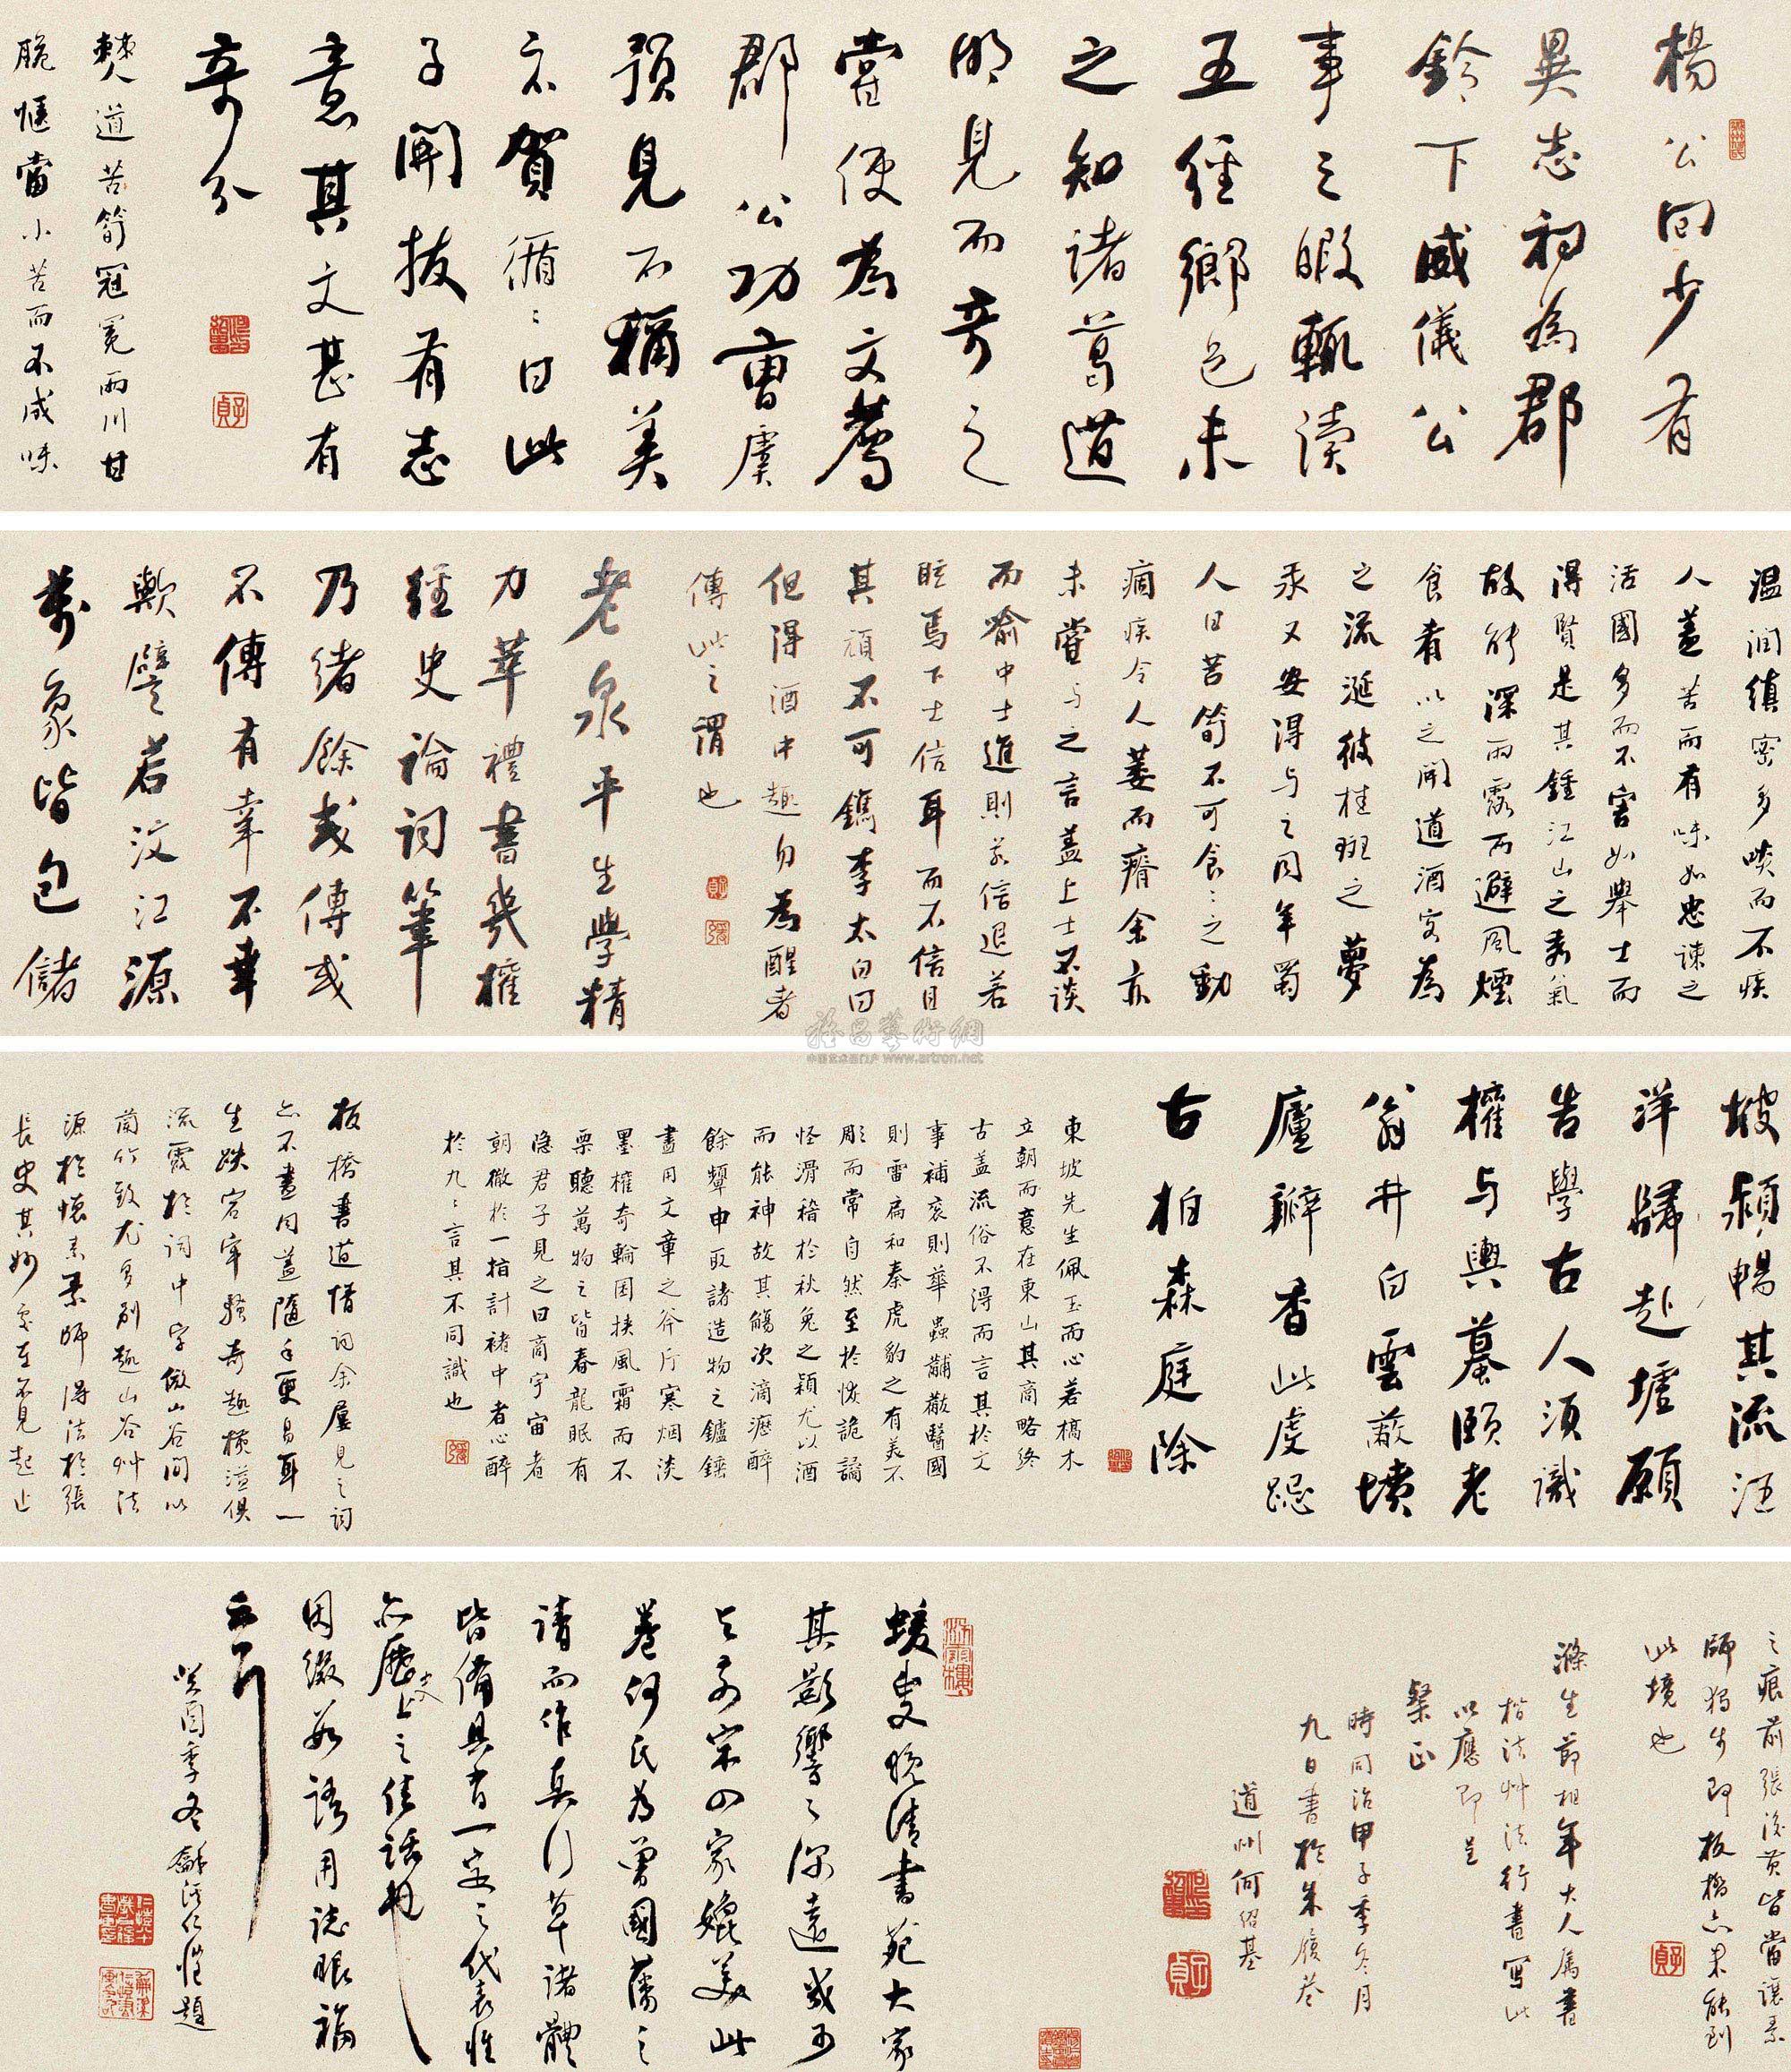 楊公回少有
異志初為郡
鈴下威儀公
事之暇輒讀
五經鄉邑未
之知諸葛道
明見而奇之
嘗便為文薦
郡公功曹虞
預見而稱美
示賀循循曰此
子開拔有志
意其文甚有
奇分
僰道苦筍冠冕兩川甘
脆愜當小苦而不成味
溫潤縝密多啖而不疾
人蓋苦而有味如忠諫之
活國多而不害如舉士而
得賢是其鍾江山之秀氣
故能深雨露而避風煙
食肴以之開道酒客為
之流涎彼桂斑之夢
汞又安得与之同年蜀
人曰苦筍不可食食之動
痼疾令人萎而瘠余亦
未嘗与之言蓋上士不談
而喻中士進則若信退若
眩焉下士信耳而不信目
其頑不可鐫李太白曰
但得酒中趣勿為醒者
傳此之謂也
老泉平生學精
力萃禮書幾權
經史論詞筆
乃緒餘或傳或
不傳有幸不幸
歟譬若汶江源
萬象皆包儲
坡潁暢其流汪
洋歸赴墟願
告學古人須識
權与輿蓦頤老
翁井白雲蔽墳
廬瓣香此虔跽
古柏森庭除
東坡先生佩玉而心若槁木
立朝而意在東山其商略終
古蓋流俗不得而言其於文
事補袞則華蟲黼黻醫國
則雷扁和秦虎豹之有美不
彫而常自然至於恢詭譎
怪滑稽於秋兔之穎尤以酒
而能神故其觴次滴瀝醉
餘顰申取諸造物之鑪錘
盡用文章之斧斤寒烟淡
墨權奇輪囷挾風霜而不
栗聽萬物之皆春龍眠有
隱君子見之曰商宇宙者
朝徹於一指計褚中者心醉
於九九言其不同識也
板橋書道情詞余屢見之詞
亦不盡同蓋隨手更易耳一
生跌宕牢騷奇趣橫溢俱
流露於詞中字仿山谷間以
蘭竹致尤多別趣山谷艸法
源於懷素素師得法於張
長史其妙處在不見起止
之痕前張後黃皆當讓素
師獨步即板橋亦未能到
此境也
滌生節相年大人屬書
楷法艸法行書寫此
以應即呈
粲正
時同治甲子季冬月
九日書於朱履巷
道州何紹基
蝯叟晚清書苑大家
其影響之深遠或可
与前宋四家媲美此
卷何氏為曾國藩之
請而作真行草諸體
皆備具有一定之代表性
亦歷史上之佳話也
因綴數語用誌眼福
云耳
癸酉季冬龢溪仁愷題
雅昌藝術網
中国艺术品门户 www.artron.net